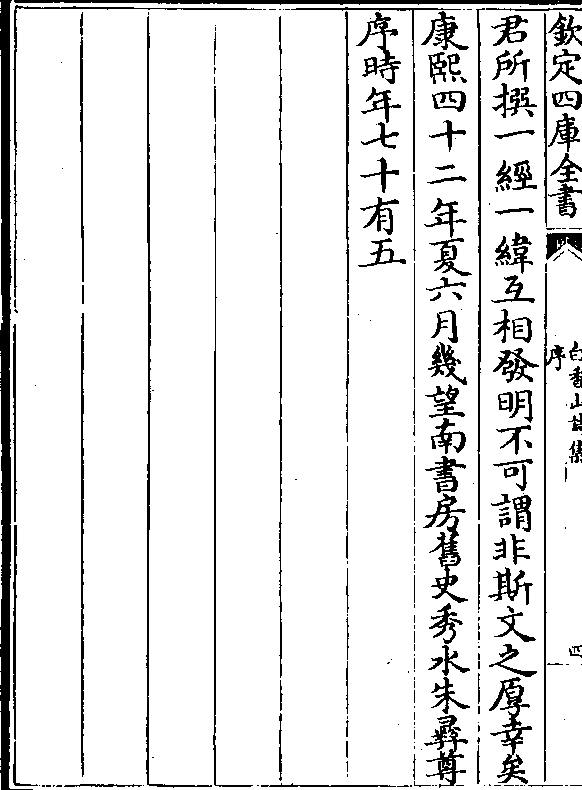 欽定四庫全書
白香山詩集
序
四
君所撰一經一緯互相發明不可謂非斯文之厚幸矣
康熙四十二年夏六月幾望南書房舊史秀水朱彝尊
序時年七十有五